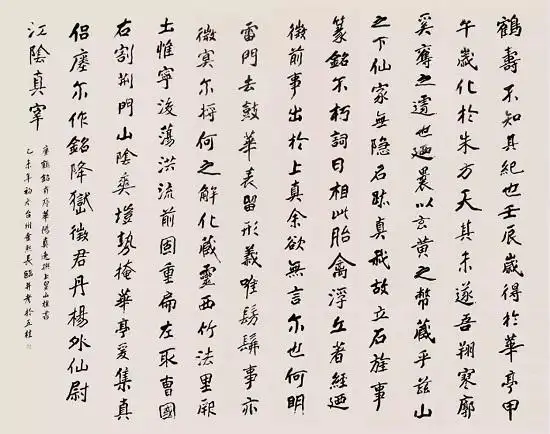 鶴壽不知其紀也壬辰歲得於華亭甲
午歲化於朱方天其未遂吾翔寥廓
奚奪之遽也迺裹以玄黃之幣藏乎茲山
之下仙家無隐名跡真我故立石旌事
篆銘不朽詞曰相此胎禽浮丘著經迺
徵前事出於上真余欲無言尔也何明
雷門去鼓華表留形義唯髣髴事亦
微冥尔將何之解化藏靈西竹法里厥
土惟寧後蕩洪流前固重扃左取曹國
右割荆門山陰爽塏勢掩華亭爰集真
侶瘞尔作銘降嶽徵君丹楊外仙尉
江陰真宰
瘞鶴銘有序華陽真逸撰上皇山樵書
乙未年初冬台州長臨并書於